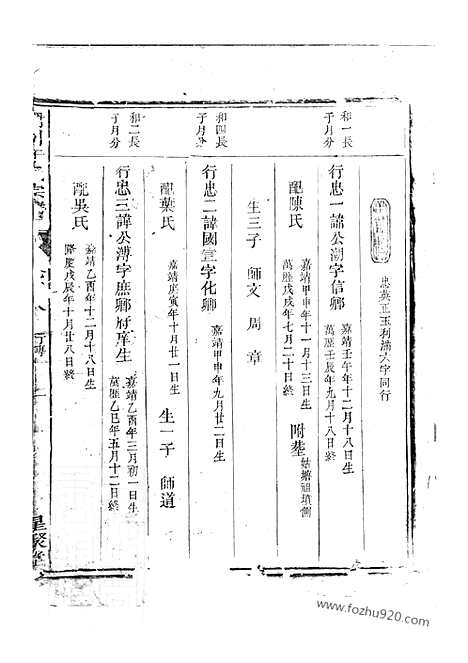 忠英正玉利清六字同行
和一長
子月分
行忠一諱公湖字信卿
嘉靖壬午年十二月十八日生
萬歷壬辰年九月十八日終
配陳氏
嘉靖甲申年十一月十三日生
萬歷戊戌年七月二十日終
附塟
姑塘祖墳側
生三子 師文 周 章
和四長
子月分
行忠二諱國宣字化卿
嘉靖甲申年九月廿二日生
配葉氏
嘉靖庚寅年十月廿一日生
生一子 師道
和二長
子月分
行忠三諱公溥字庶卿府庠生
嘉靖乙酉年三月初一日生
萬歷乙巳年五月十二日終
配吳氏
嘉靖乙酉年十二月十八日生
隆慶戊辰年十月廿八日終
星聚堂
www.fozhu920.com